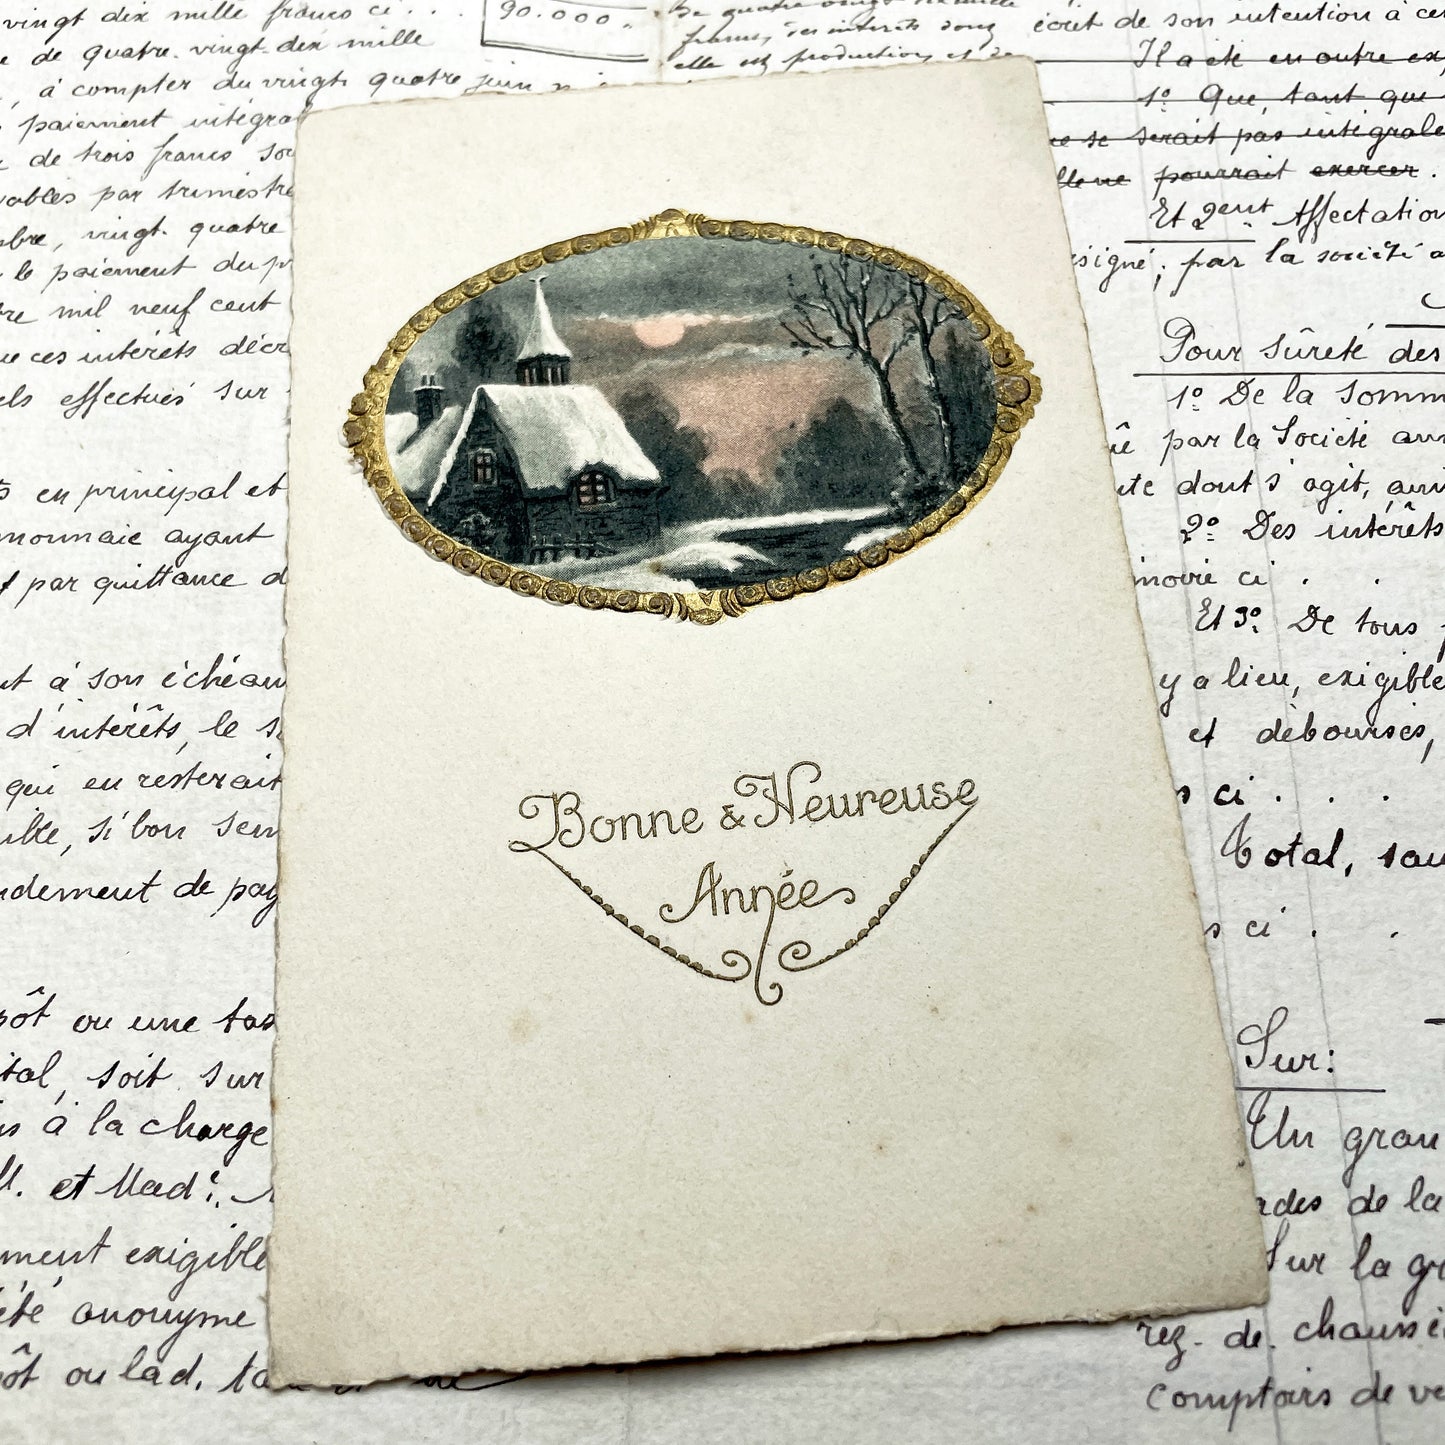 vingt dix mille francs ci . . .
90.000
de quatre vingt dix mille
, à compter du vingt quatre juin
paiement intégral
de trois francs
vables par trimestre
bre, vingt quatre
le paiement du
re mil neuf cent
ue ces intérêts
els effectués sur
en principal et
monnaie ayant
par quittance d
t à son échéan
d'intérêts, le
qui en resterait
, si bon sem
ndement de pay
pôt ou une tax
ital, soit sur
à la charge
et Mad.e
ment exigible
anonyme
pôt ou lad.
De quatre vingt dix mille
francs, ses intérêts
elle est production et de
Bonne & Heureuse
Année
écrit de son intention à ce
Il a été en outre ex
1º Que, tant que
se serait pas intégrale
pourrait exercer.
Et 2ent Affectation
signé; par la société a
Pour Sûreté des
1º De la somm
par la Société an
dont s'agit, a
2º Des intérêts
ci . .
Et 3º De tous
y a lieu, exigible
et déboursés,
ci . . .
Total, sau
ci . .
Sur:
Un gran
ades de la
Sur la gr
rez-de-chaussé
comptoirs de ve